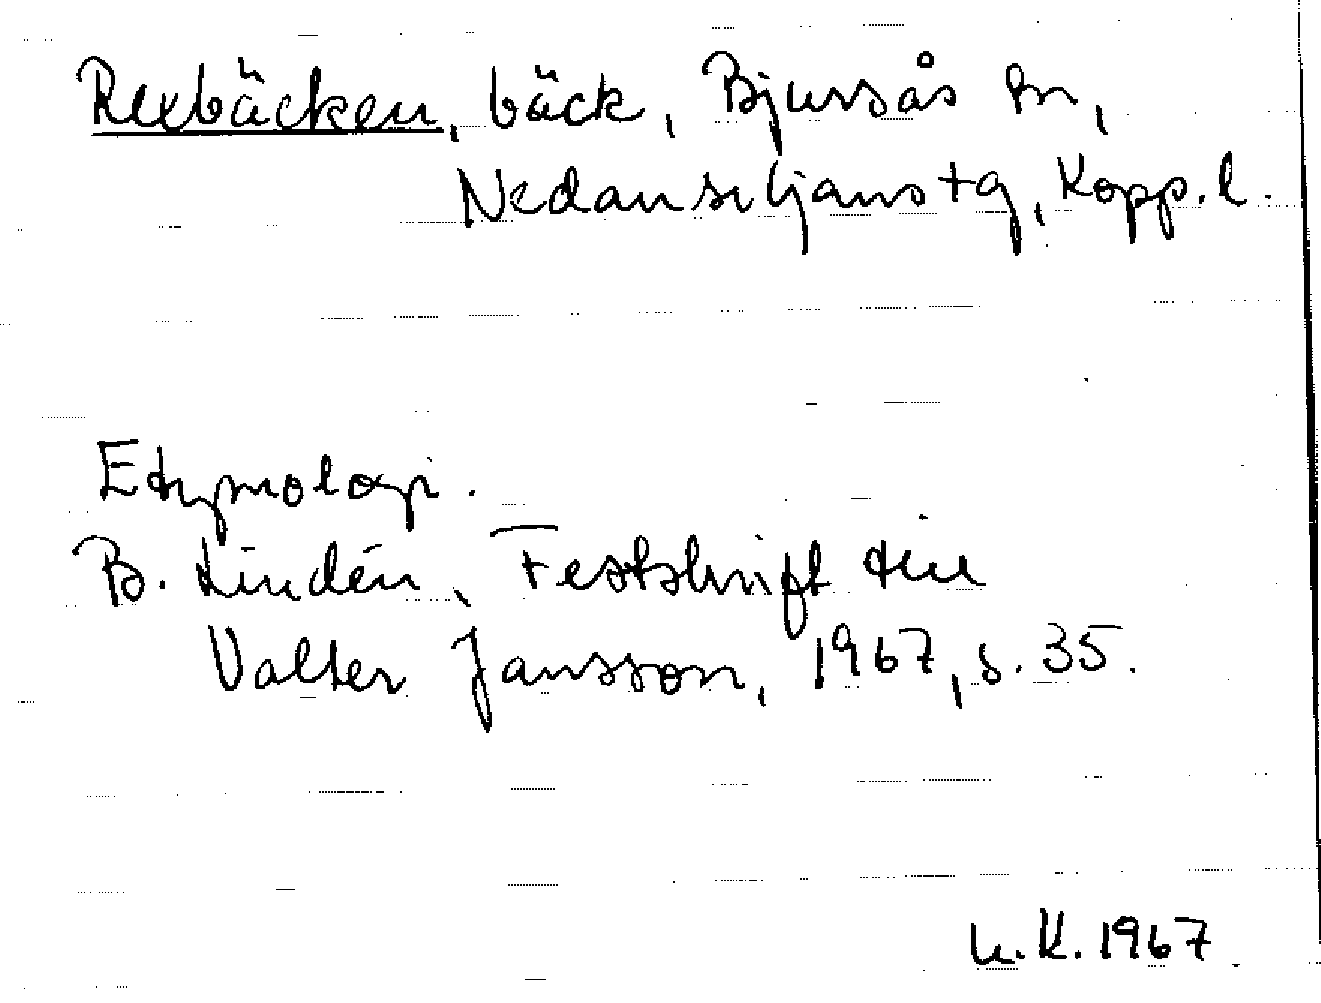 Rexbäcken, bäck, Bjursås sn,
Nedansiljans tg, Kopp. l.
Etymologi.
B. Lindén, Festskrift till
Valter Jansson, 1967, s. 35.
K. 1967